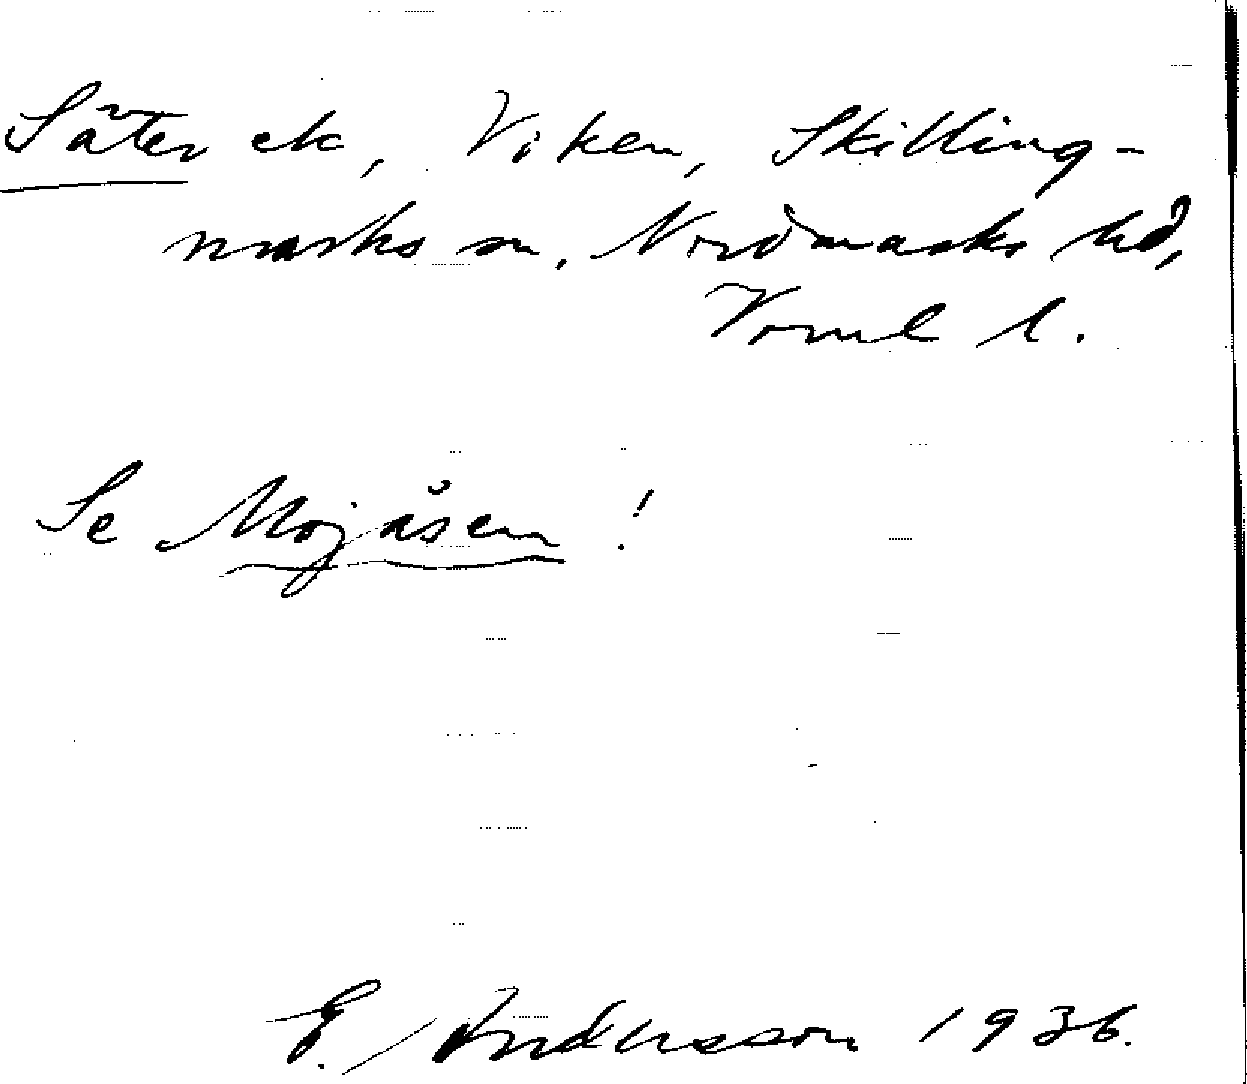 Säter ek, Viken, Skilling-
marks sn, Nordmarks hd,
Vrml l.
Se Mojåsen!
E. Andersson 1936.